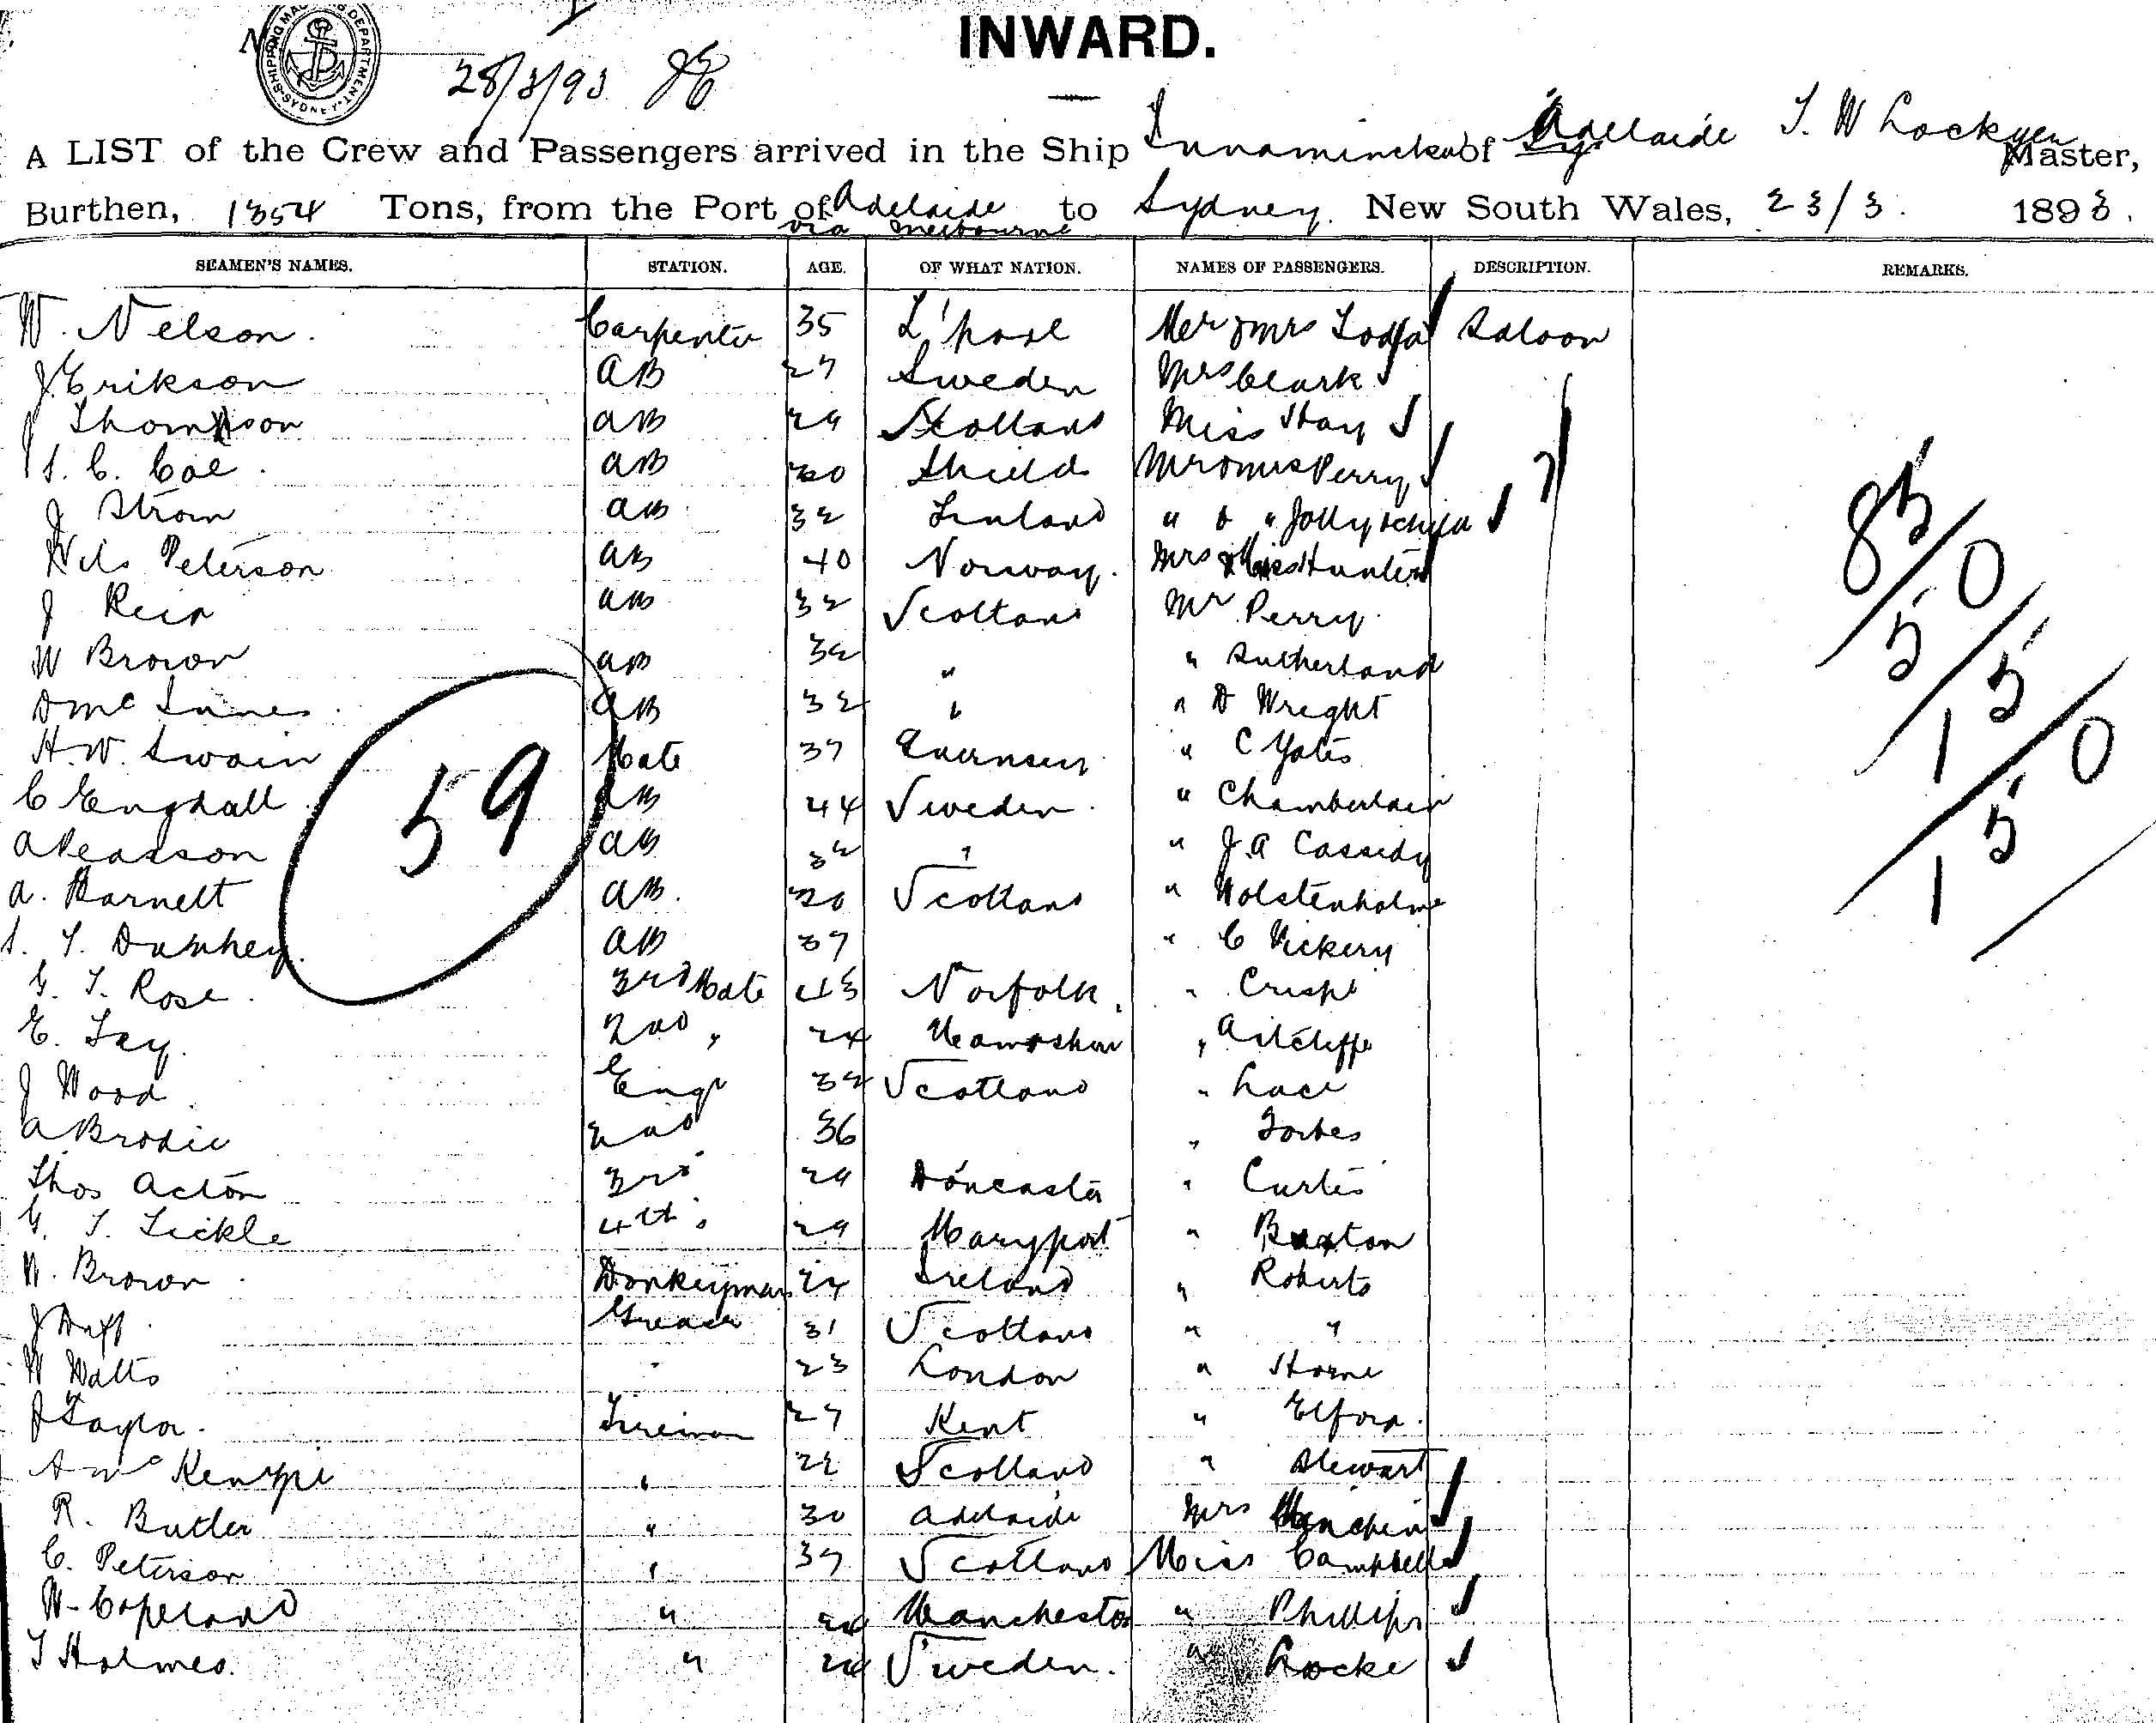 SHIPPING MASTER'S DEPARTMENT SYDNEY
28/3/93
INWARD.
A LIST of the Crew and Passengers arrived in the Ship Innamincka of Adelaide T. W Lockyer Master,
Burthen, 1354 Tons, from the Port of Adelaide to Sydney. New South Wales, 23/3. 1893.
via Melbourne
SEAMEN'S NAMES. STATION. AGE. OF WHAT NATION. NAMES OF PASSENGERS. DESCRIPTION. REMARKS.
W. Nelson. Carpenter 35 L'pool Mr & Mrs Saloon
J Erikson AB 27 Sweden Mrs Clark
J Thomson AB 29 Scotland Miss Hay
S. C. Coe. AB Shields Mr & Mrs Perry
J Strom AB 32 Finland " & " Jolly & child
Nils Peterson AB 40 Norway. Mrs & Miss Hunter
J Reid AB 32 Scotland Mr Perry.
W Brown AB 32 " " Sutherland
D McInnes. AB 32 " " D Wright
H. W. Swain Mate 37 Guernsey " C Yates
C Engdall AB 44 Sweden. " Chamberlain
A Peasson AB 32 " " J. A Cassidy
A. Barnett AB. 20 Scotland " Wolstenholme
AB 37 " C Vickery
G. T. Rose. 3rd Mate 43 Norfolk. " Crispe
E. Fey. 2nd " 24 " Aitcliffe
J Wood. Engr 32 Scotland " Luce
A Brodie 2nd 36 " Forbes
Thos Acton 3rd 29 Doncaster " Curtis
G. T. Tickle 4th " 29 Maryport " Buxton
W. Brown Donkeyman 24 Ireland " Roberts
J Duff. Greaser 31 Scotland " "
W Watts " 23 London " Horne
J Taylor. Fireman 27 Kent " Elford.
A McKenzie " 22 Scotland " Stewart
R. Butler " 30 Adelaide Mrs Minchin
C. Peterson " 37 Scotland Miss Campbell
W. Copeland " 24 Manchester " Phillips
T Holmes. " 24 Sweden. " Locke
59
85/0
5/5
1/0
15